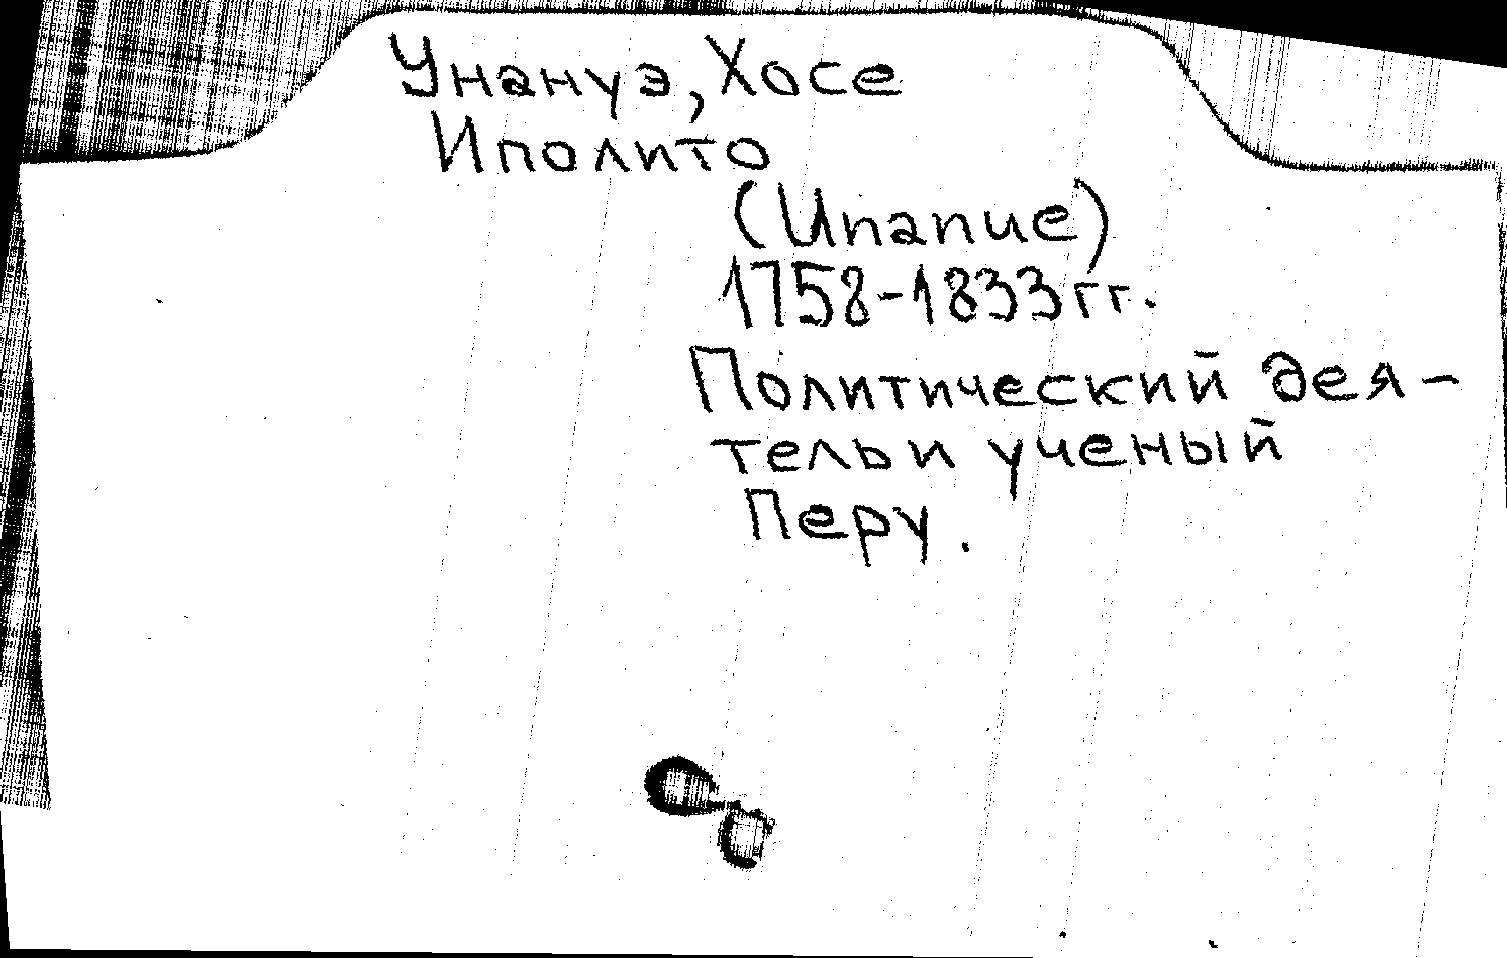 Унануэ, Хосе
Иполито
(Unanue)
1758-1833 гг.
Политический дея-
тель и ученый
Перу.